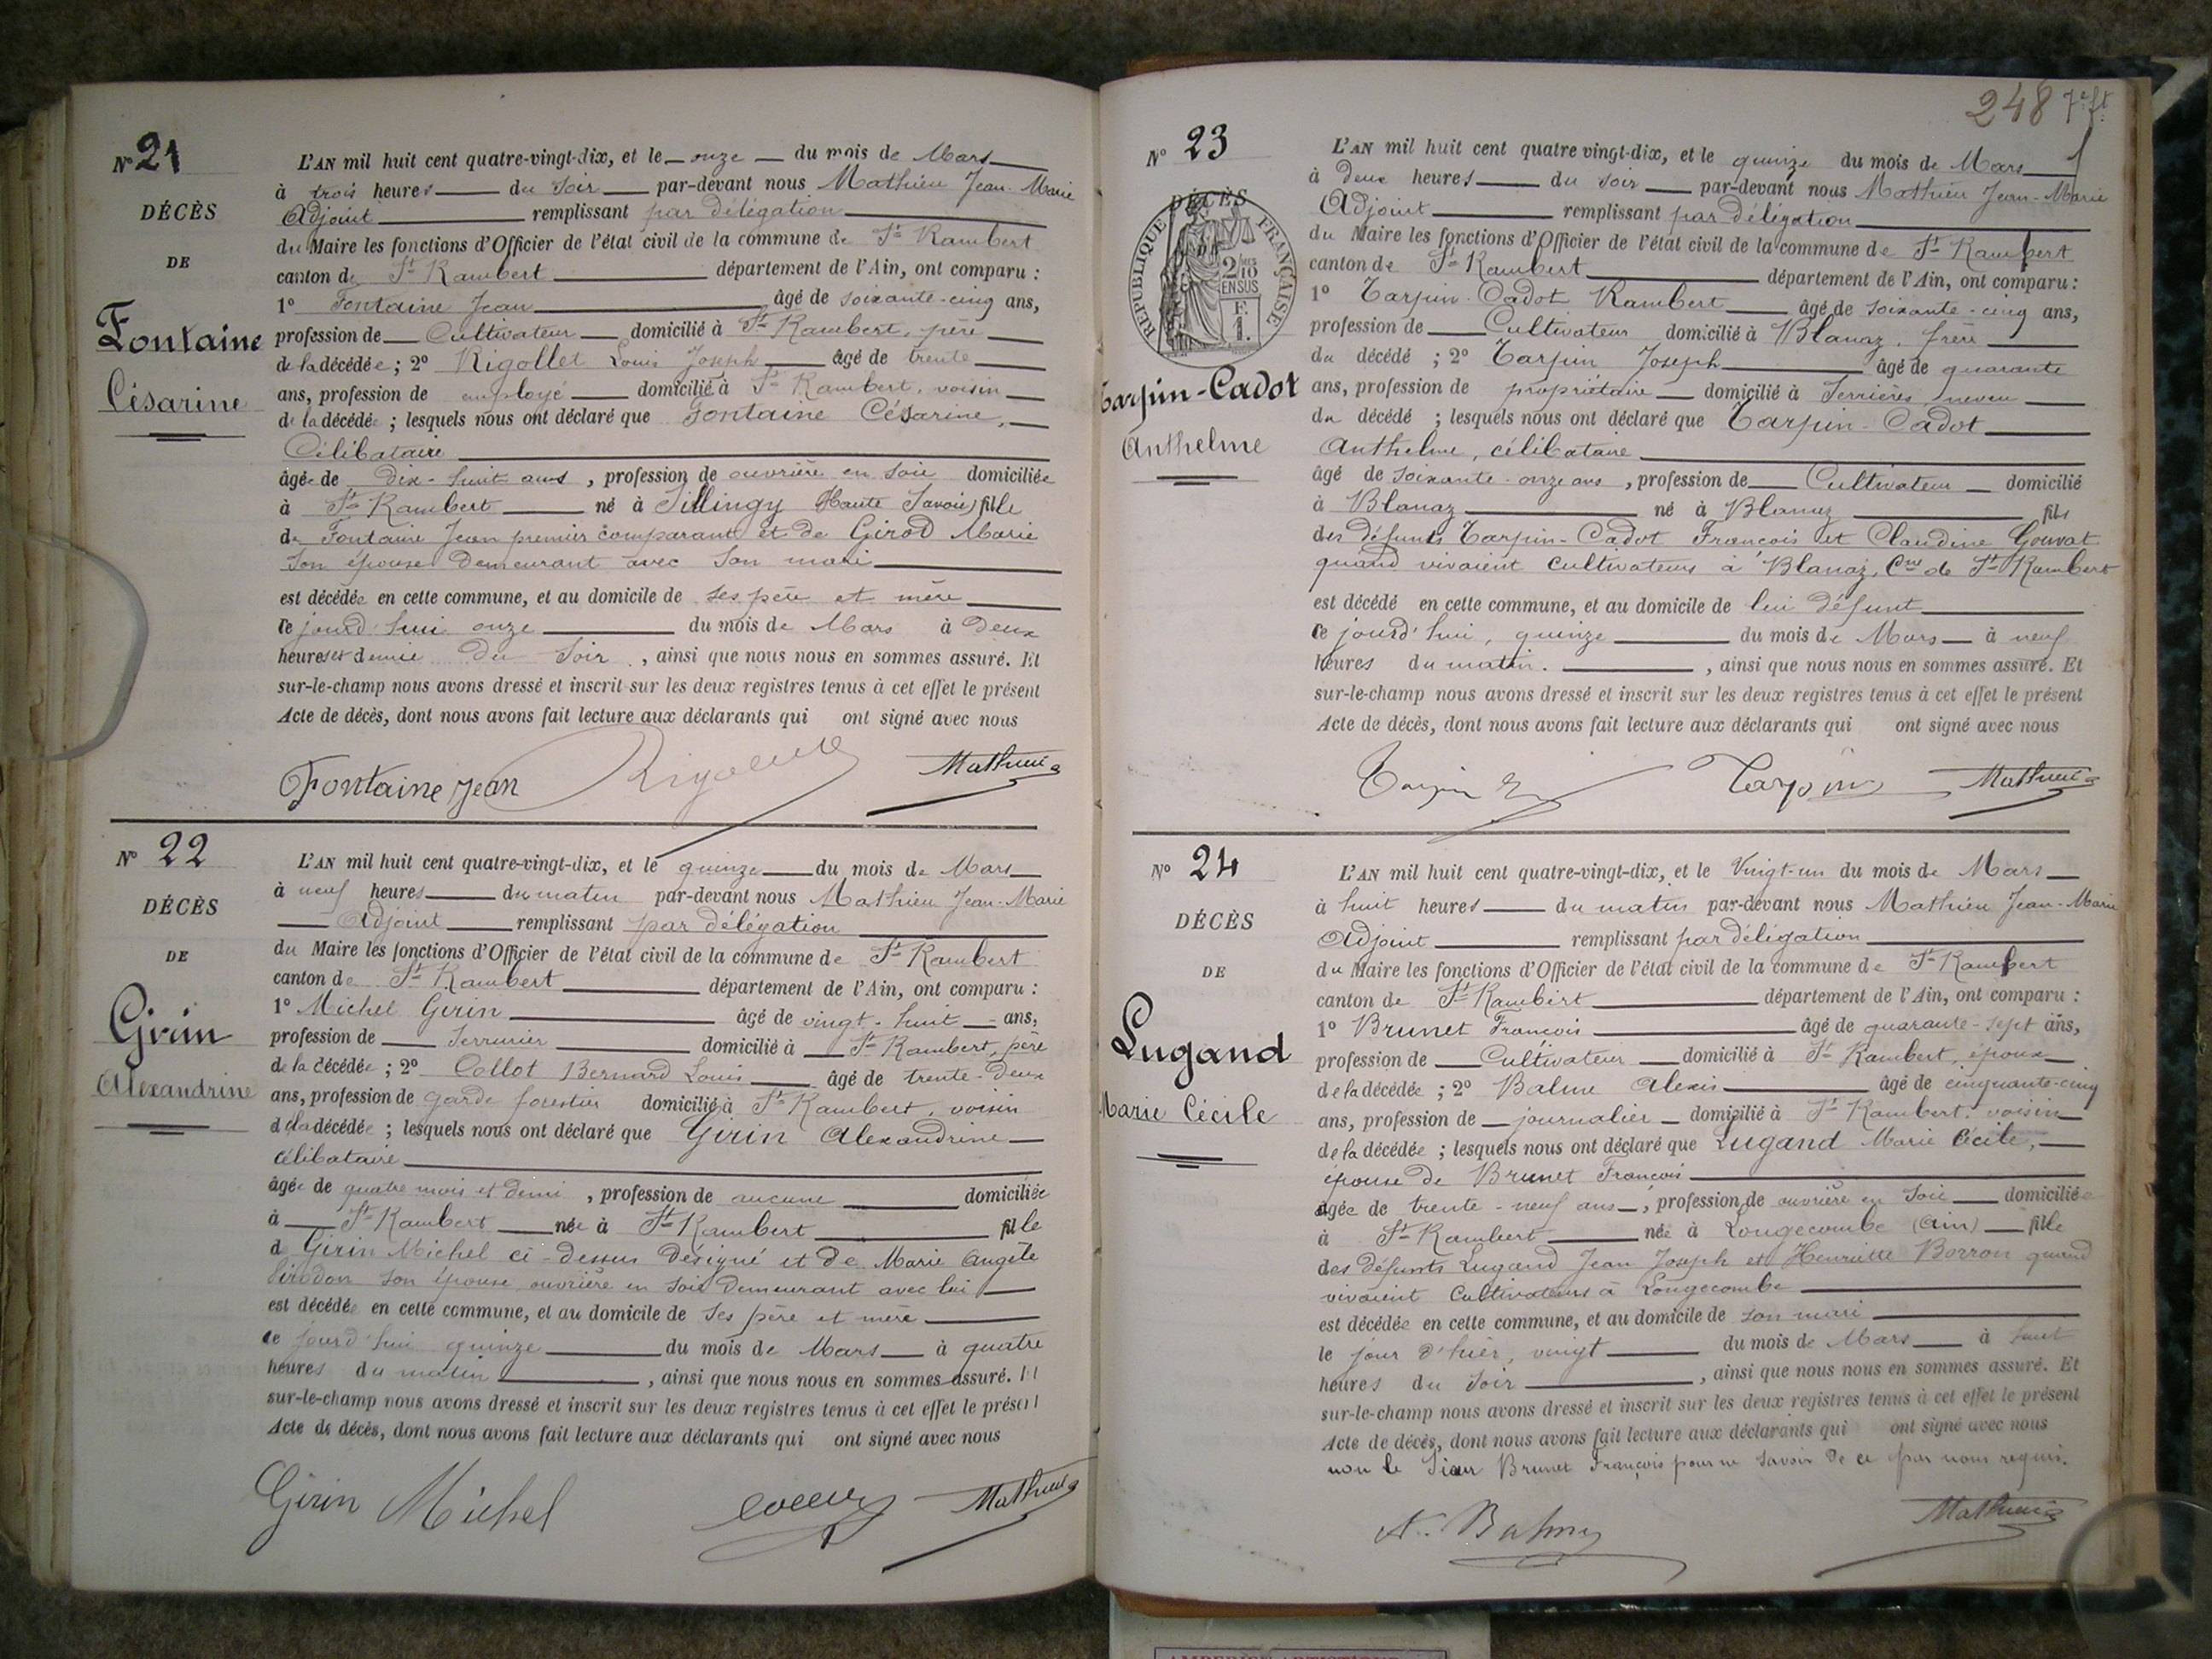 N° 21
DÉCÈS
DE
Fontaine
Césarine
L'AN mil huit cent quatre-vingt-dix, et le onze du mois de Mars
à trois heures du soir par-devant nous Mathieu Jean-Marie
Adjoint remplissant par délégation
du Maire les fonctions d'Officier de l'état civil de la commune de St Rambert
canton de St Rambert département de l'Ain, ont comparu :
1° Fontaine Jean âgé de soixante-cinq ans,
profession de Cultivateur domicilié à St Rambert, père
de la décédée ; 2° Rigollet Louis Joseph âgé de trente
ans, profession de employé domicilié à St Rambert, voisin
de la décédée ; lesquels nous ont déclaré que Fontaine Césarine,
Célibataire
âgée de dix-huit ans, profession de ouvrière en soie domiciliée
à St Rambert né à Sillingy (Haute Savoie) fille
de Fontaine Jean premier comparant et de Girod Marie
son épouse demeurant avec son mari
est décédée en cette commune, et au domicile de ses père et mère
ce jourd'hui onze du mois de Mars à deux
heures et demie du soir, ainsi que nous nous en sommes assuré. Et
sur-le-champ nous avons dressé et inscrit sur les deux registres tenus à cet effet le présent
Acte de décès, dont nous avons fait lecture aux déclarants qui ont signé avec nous
Fontaine Jean Rigollet Mathieu
N° 22
DÉCÈS
DE
Girin
Alexandrine
L'AN mil huit cent quatre-vingt-dix, et le quinze du mois de Mars
à neuf heures du matin par-devant nous Mathieu Jean-Marie
Adjoint remplissant par délégation
du Maire les fonctions d'Officier de l'état civil de la commune de St Rambert
canton de St Rambert département de l'Ain, ont comparu :
1° Michel Girin âgé de vingt-huit ans,
profession de Serrurier domicilié à St Rambert, père
de la décédée ; 2° Collot Bernard Louis âgé de trente-deux
ans, profession de garde forestier domicilié à St Rambert, voisin
d la décédée ; lesquels nous ont déclaré que Girin Alexandrine
célibataire
âgée de quatre mois et demi, profession de aucune domiciliée
à St Rambert née à St Rambert fille
d Girin Michel ci-dessus désigné et de Marie Angèle
son épouse ouvrière en soie demeurant avec lui
est décédée en cette commune, et au domicile de ses père et mère
ce jourd'hui quinze du mois de Mars à quatre
heures du matin, ainsi que nous nous en sommes assuré. Et
sur-le-champ nous avons dressé et inscrit sur les deux registres tenus à cet effet le présent
Acte de décès, dont nous avons fait lecture aux déclarants qui ont signé avec nous
Girin Michel Mathieu
248 7e ft
N° 23
DÉCÈS
RÉPUBLIQUE FRANÇAISE
2/10 EN SUS
F. 1.
Tarpin-Cadot
Anthelme
L'AN mil huit cent quatre vingt-dix, et le quinze du mois de Mars
à deux heures du soir par-devant nous Mathieu Jean-Marie
Adjoint remplissant par délégation
du Maire les fonctions d'Officier de l'état civil de la commune de St Rambert
canton de St Rambert département de l'Ain, ont comparu :
1° Tarpin-Cadot Rambert âgé de soixante-cinq ans,
profession de Cultivateur domicilié à Blanaz, frère
du décédé ; 2° Tarpin Joseph âgé de quarante
ans, profession de propriétaire domicilié à Serrières neveu
du décédé ; lesquels nous ont déclaré que Tarpin-Cadot
Anthelme, célibataire
âgé de soixante-onze ans, profession de Cultivateur domicilié
à Blanaz né à Blanaz fils
des défunts Tarpin-Cadot François et Claudine Gouvat
quand vivaient cultivateurs à Blanaz, Cne de St Rambert
est décédé en cette commune, et au domicile de lui défunt
ce jourd'hui, quinze du mois de Mars à neuf
heures du matin., ainsi que nous nous en sommes assuré. Et
sur-le-champ nous avons dressé et inscrit sur les deux registres tenus à cet effet le présent
Acte de décès, dont nous avons fait lecture aux déclarants qui ont signé avec nous
Tarpin Tarpin Mathieu
N° 24
DÉCÈS
DE
Lugand
Marie Cécile
L'AN mil huit cent quatre-vingt-dix, et le Vingt-un du mois de Mars
à huit heures du matin par-devant nous Mathieu Jean-Marie
Adjoint remplissant par délégation
du Maire les fonctions d'Officier de l'état civil de la commune de St Rambert
canton de St Rambert département de l'Ain, ont comparu :
1° Brunet François âgé de quarante-sept ans,
profession de Cultivateur domicilié à St Rambert, époux
de la décédée ; 2° Balme Alexis âgé de cinquante-cinq
ans, profession de journalier domicilié à St Rambert, voisin
de la décédée ; lesquels nous ont déclaré que Lugand Marie Cécile,
épouse de Brunet François
âgée de trente-neuf ans, profession de ouvrière en soie domiciliée
à St Rambert née à Longecombe (Ain) fille
des défunts Lugand Jean Joseph et Henriette Borron quand
vivaient Cultivateurs à Longecombe
est décédée en cette commune, et au domicile de son mari
le jour d'hier, vingt du mois de Mars à huit
heures du soir, ainsi que nous nous en sommes assuré. Et
sur-le-champ nous avons dressé et inscrit sur les deux registres tenus à cet effet le présent
Acte de décès, dont nous avons fait lecture aux déclarants qui ont signé avec nous
non le Sieur Brunet François pour ne savoir de ce par nous requis.
A. Balme Mathieu